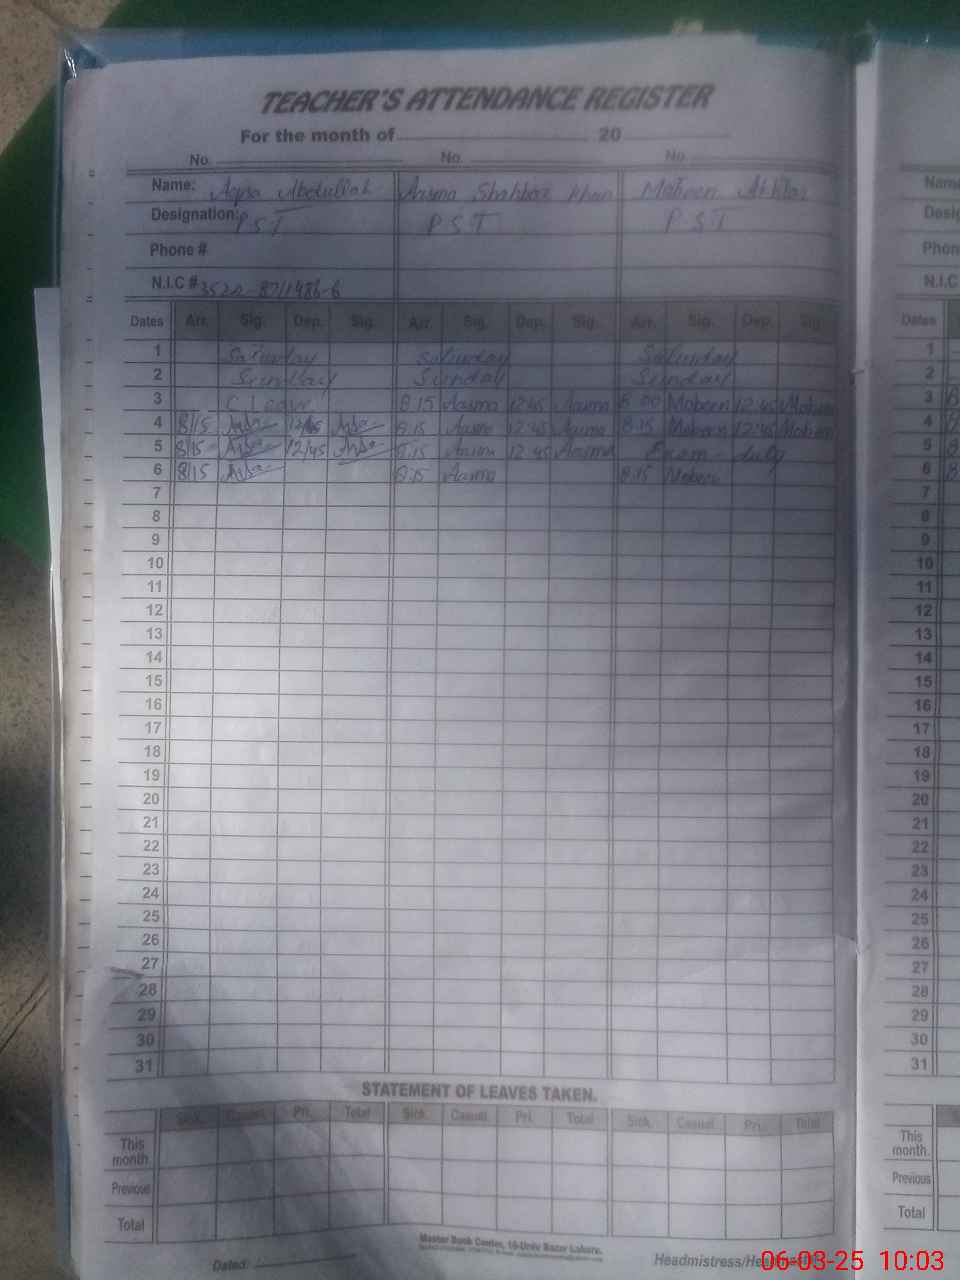 TEACHER'S ATTENDANCE REGISTER
For the month of 20
No. No. No.
Name: Aqsa Abdullah Aayma Shahbaz Khan Mobeen Akhtar Name
Designation: PST PST PST Desig
Phone # Phon
N.I.C # N.I.C
Dates Arr. Sig. Dep. Sig. Arr. Sig. Dep. Sig. Arr. Sig. Dep. Sig. Dates
1 Saturday Saturday Saturday 1
2 Sunday Sunday Sunday 2
3 C Leave 8.15 Aayma 12:45 Aayma 8.00 Mobeen 12:45 Mobeen 3
4 8/15 12/45 8.15 Aayma 12:45 Aayma 8.15 Mobeen 12:45 Mobeen 4
5 8/15 12/45 8.15 Aayma 12:45 Aayma Exam duty 5
6 8/15 8.15 Aayma 8.15 Mobeen 6
7 7
8 8
9 9
10 10
11 11
12 12
13 13
14 14
15 15
16 16
17 17
18 18
19 19
20 20
21 21
22 22
23 23
24 24
25 25
26 26
27 27
28 28
29 29
30 30
31 31
STATEMENT OF LEAVES TAKEN.
Sick. Casual Pri. Total Sick. Casual Pri. Total Sick. Casual Pri. Total
This month. This month.
Previous Previous
Total Total
Master Book Center, 16-Urdu Bazar Lahore.
Dated: Headmistress/Headmaster
06-03-25 10:03